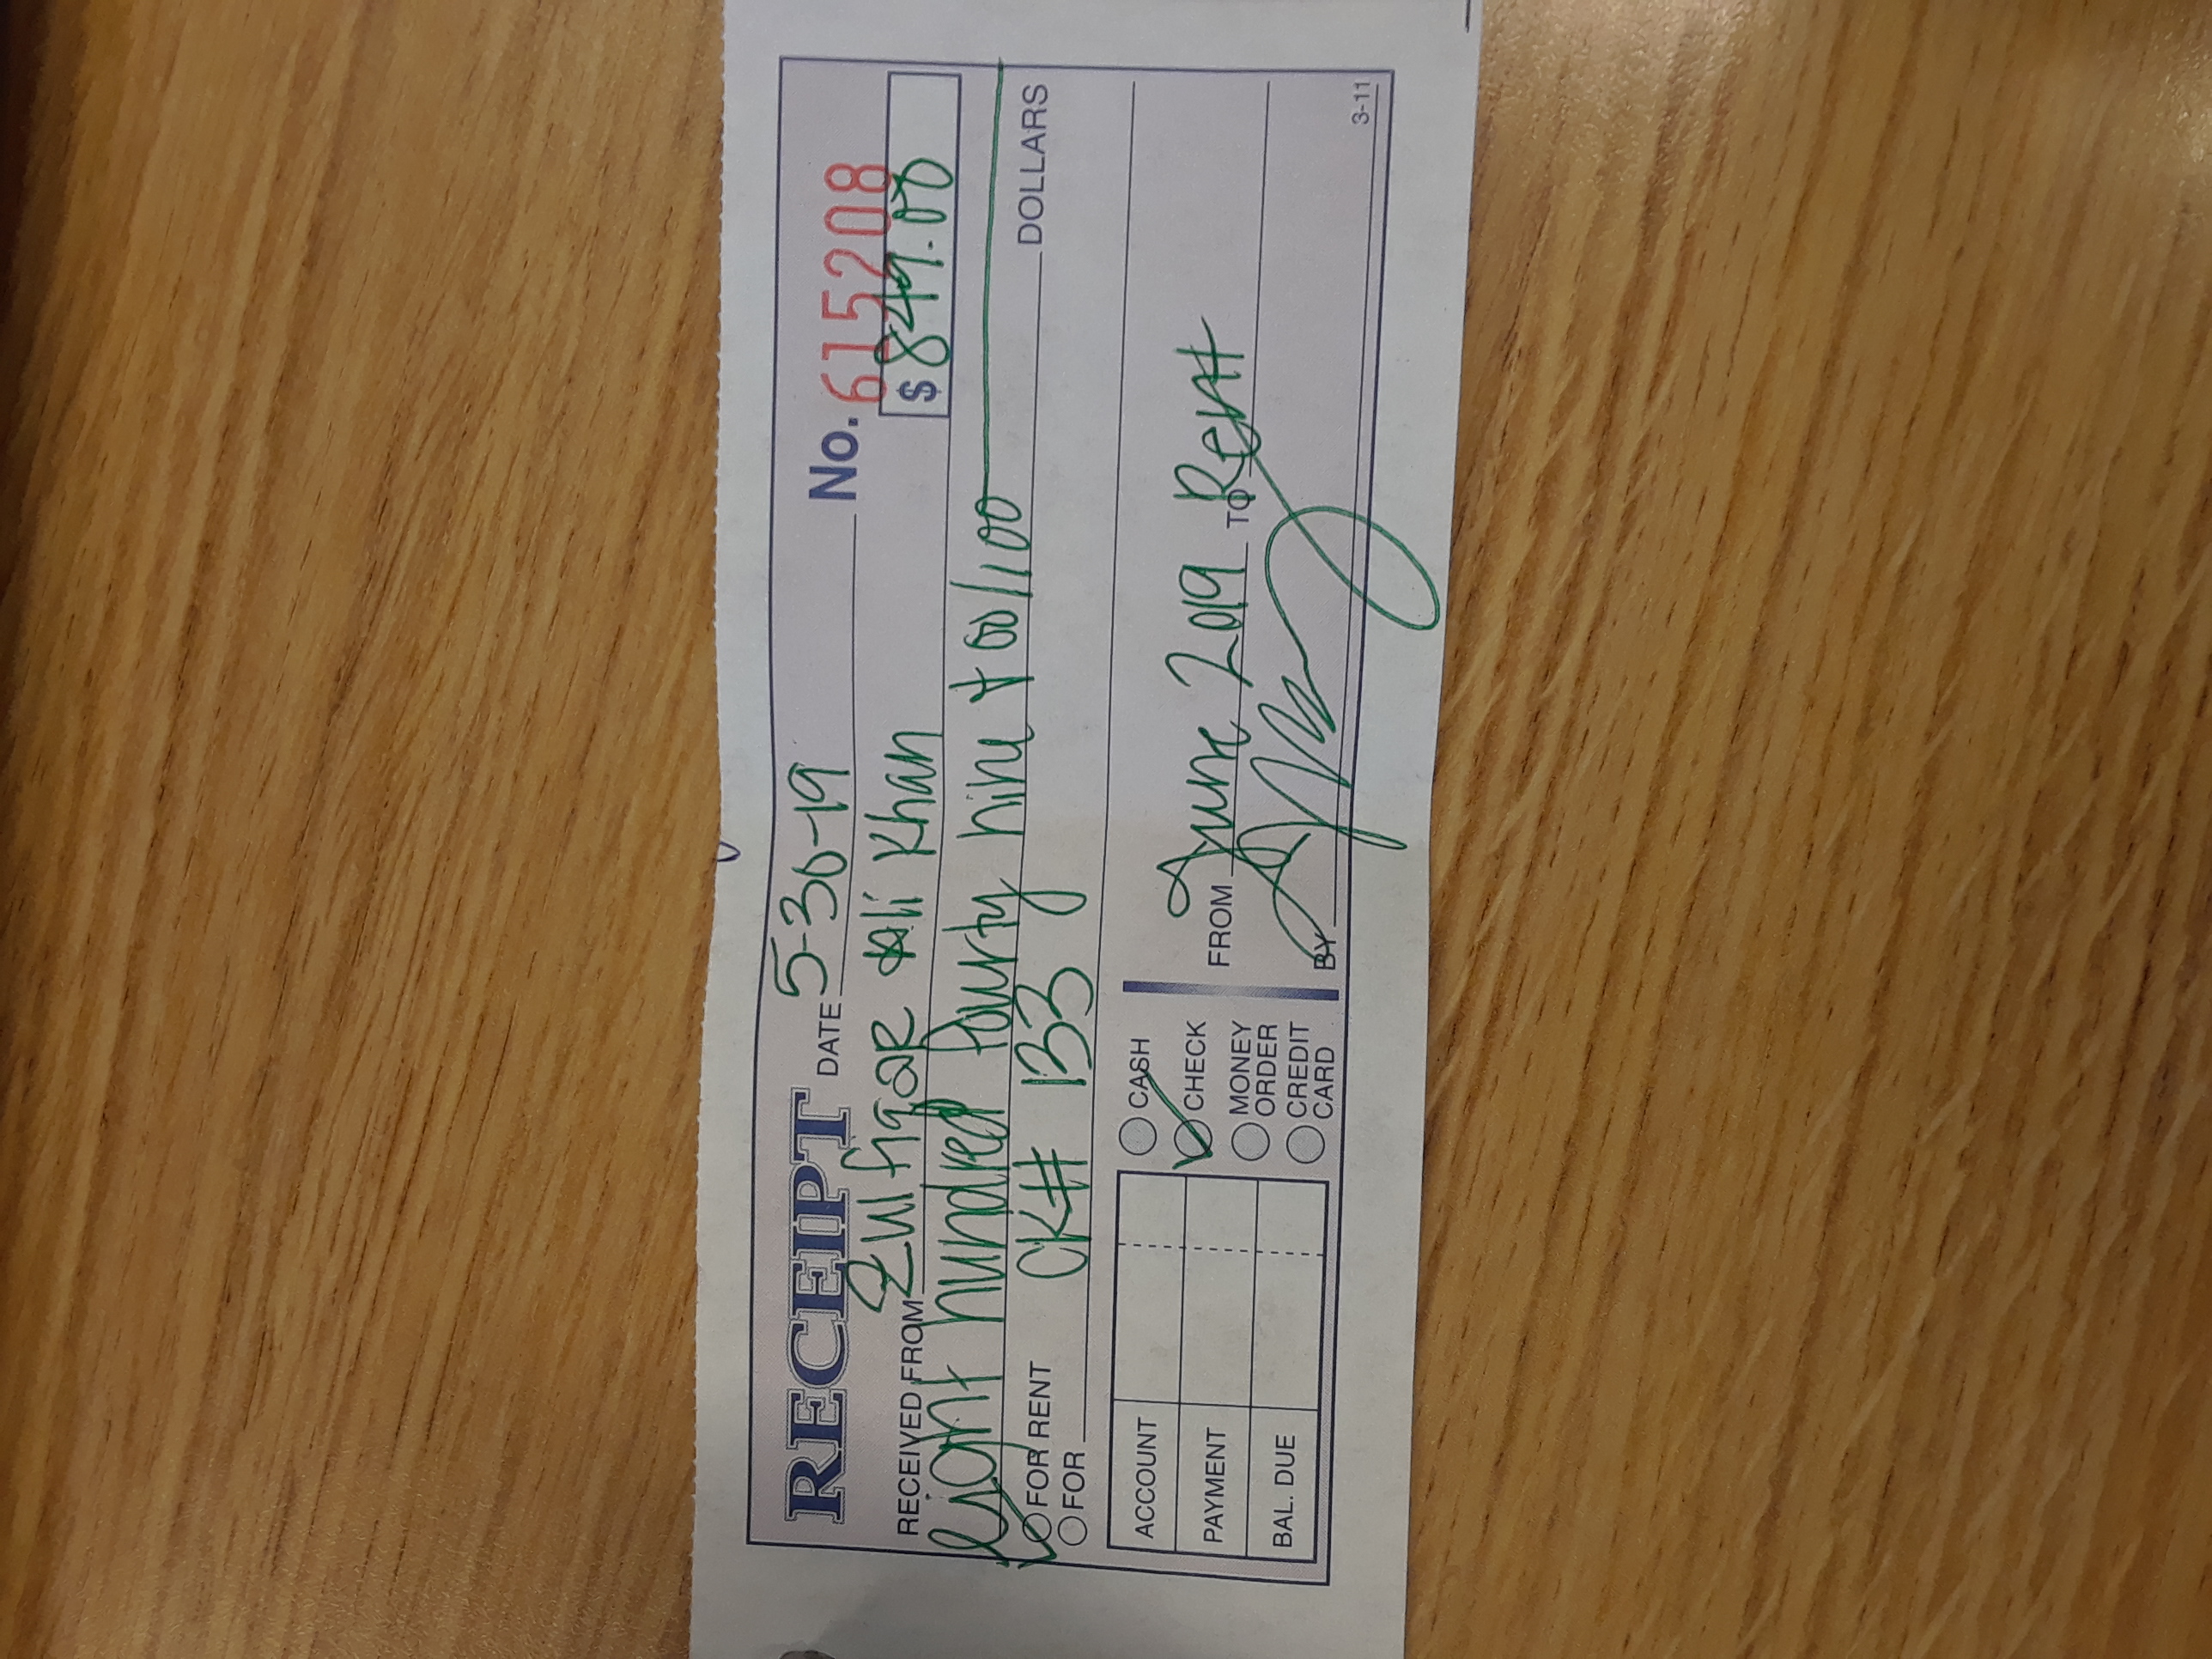 RECEIPT DATE 5-30-19 No. 615208
RECEIVED FROM Zulfiqar Ali Khan $ 849.00
eight hundred fourty nine + 00/100 DOLLARS
FOR RENT CK# 133
FOR
ACCOUNT
PAYMENT
BAL. DUE
CASH
CHECK
MONEY ORDER
CREDIT CARD
FROM June 2019 TO Rent
BY
3-11